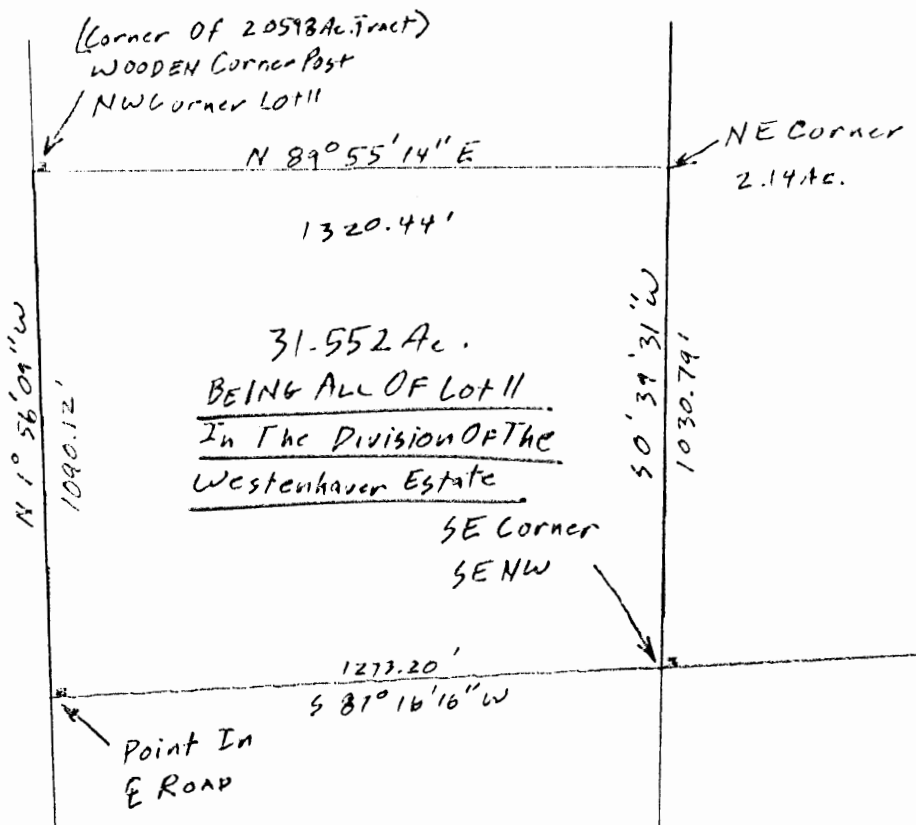 (Corner Of 2.0598 Ac. Tract)
WOODEN Corner Post
NW Corner Lot 11
N 89° 55' 14" E
NE Corner
2.14 Ac.
1320.44'
N 1° 56' 09" W
1090.12'
31.552 Ac.
BEING ALL OF Lot 11
In The Division Of The
Westenhaver Estate
S 0° 39' 31" W
1030.79'
SE Corner
SE NW
1273.20'
S 87° 16' 16" W
Point In
℄ ROAD